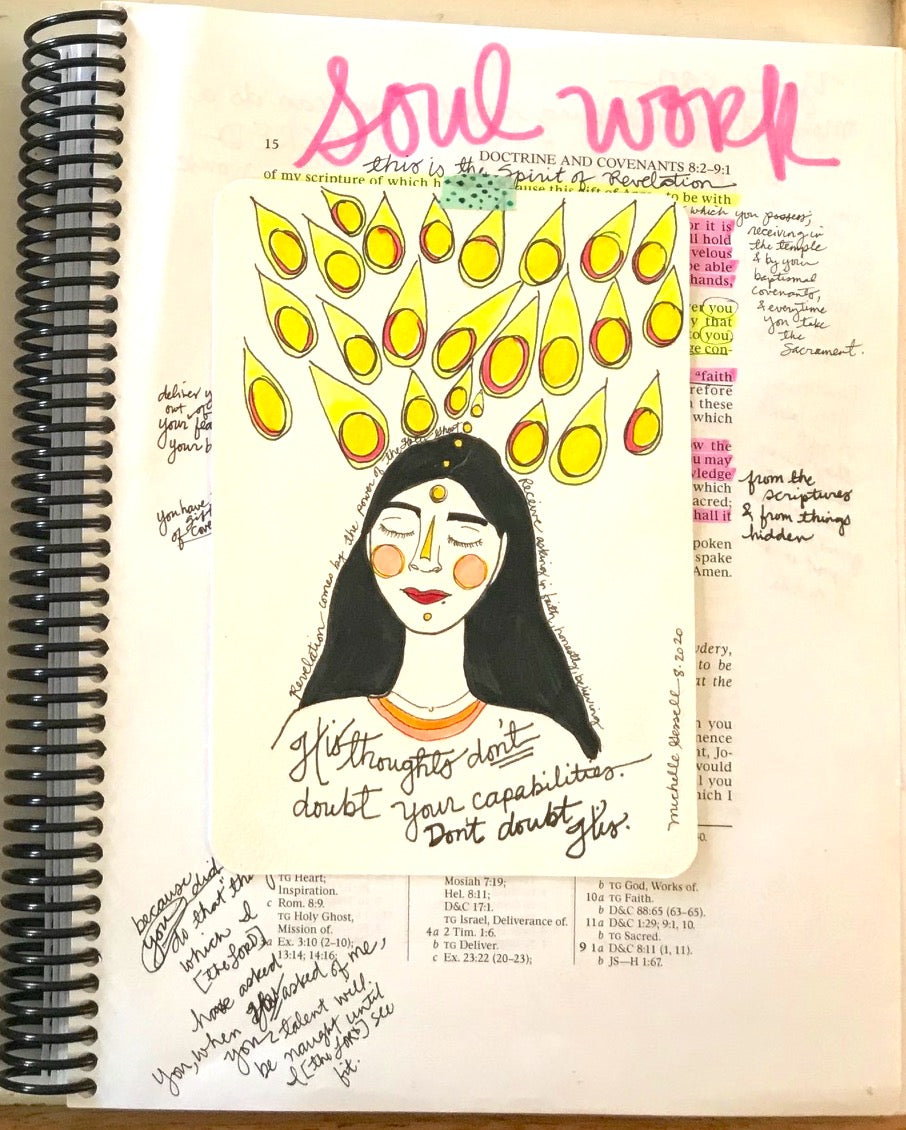 soul work
15
DOCTRINE AND COVENANTS 8:2–9:1
this is the Spirit of Revelation
of my scripture of which h
use this gift of
to be with
which you possess,
receiving in
the temple
& by your
baptismal
covenants,
& everytime
you take
the
Sacrament.
or it is
ll hold
velous
be able
hands,
ver you
y that
to you,
ge con-
"faith
refore
these
which
w the
u may
ledge
which
acred;
hall it
poken
spake
Amen.
deliver y
out of
your
your b
you have
gift
of Cove
from the
scriptures
& from things
hidden
Revelation comes by the power of the Holy Ghost
Receive asking in faith, honestly, believing
His thoughts don't
doubt your capabilities.
Don't doubt His.
michelle Gessell 8.2020
wdery,
to be
at the
n you
nence
nt, Jo-
would
l you
hich I
because
you did
do that th
which I
[the Lord]
have asked
you, when asked of me,
you talent will
be naught until
I [the Lord] see
fit.
TG Heart;
Inspiration.
c Rom. 8:9.
TG Holy Ghost,
Mission of.
a Ex. 3:10 (2–10);
13:14; 14:16;
Mosiah 7:19;
Hel. 8:11;
D&C 17:1.
TG Israel, Deliverance of.
4a 2 Tim. 1:6.
b TG Deliver.
c Ex. 23:22 (20–23);
b TG God, Works of.
10a TG Faith.
b D&C 88:65 (63–65).
11a D&C 1:29; 9:1, 10.
b TG Sacred.
9 1a D&C 8:11 (1, 11).
b JS—H 1:67.